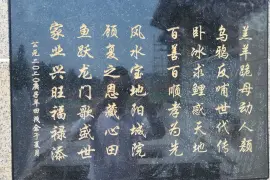 羔羊跪母动人颜
乌鸦反哺世代传
卧冰求鲤感天地
百善百顺孝为先
风水宝地阳城院
顾复之恩藏心田
鱼跃龙门歌盛世
家业兴旺福禄添
公元二〇二〇庚子年